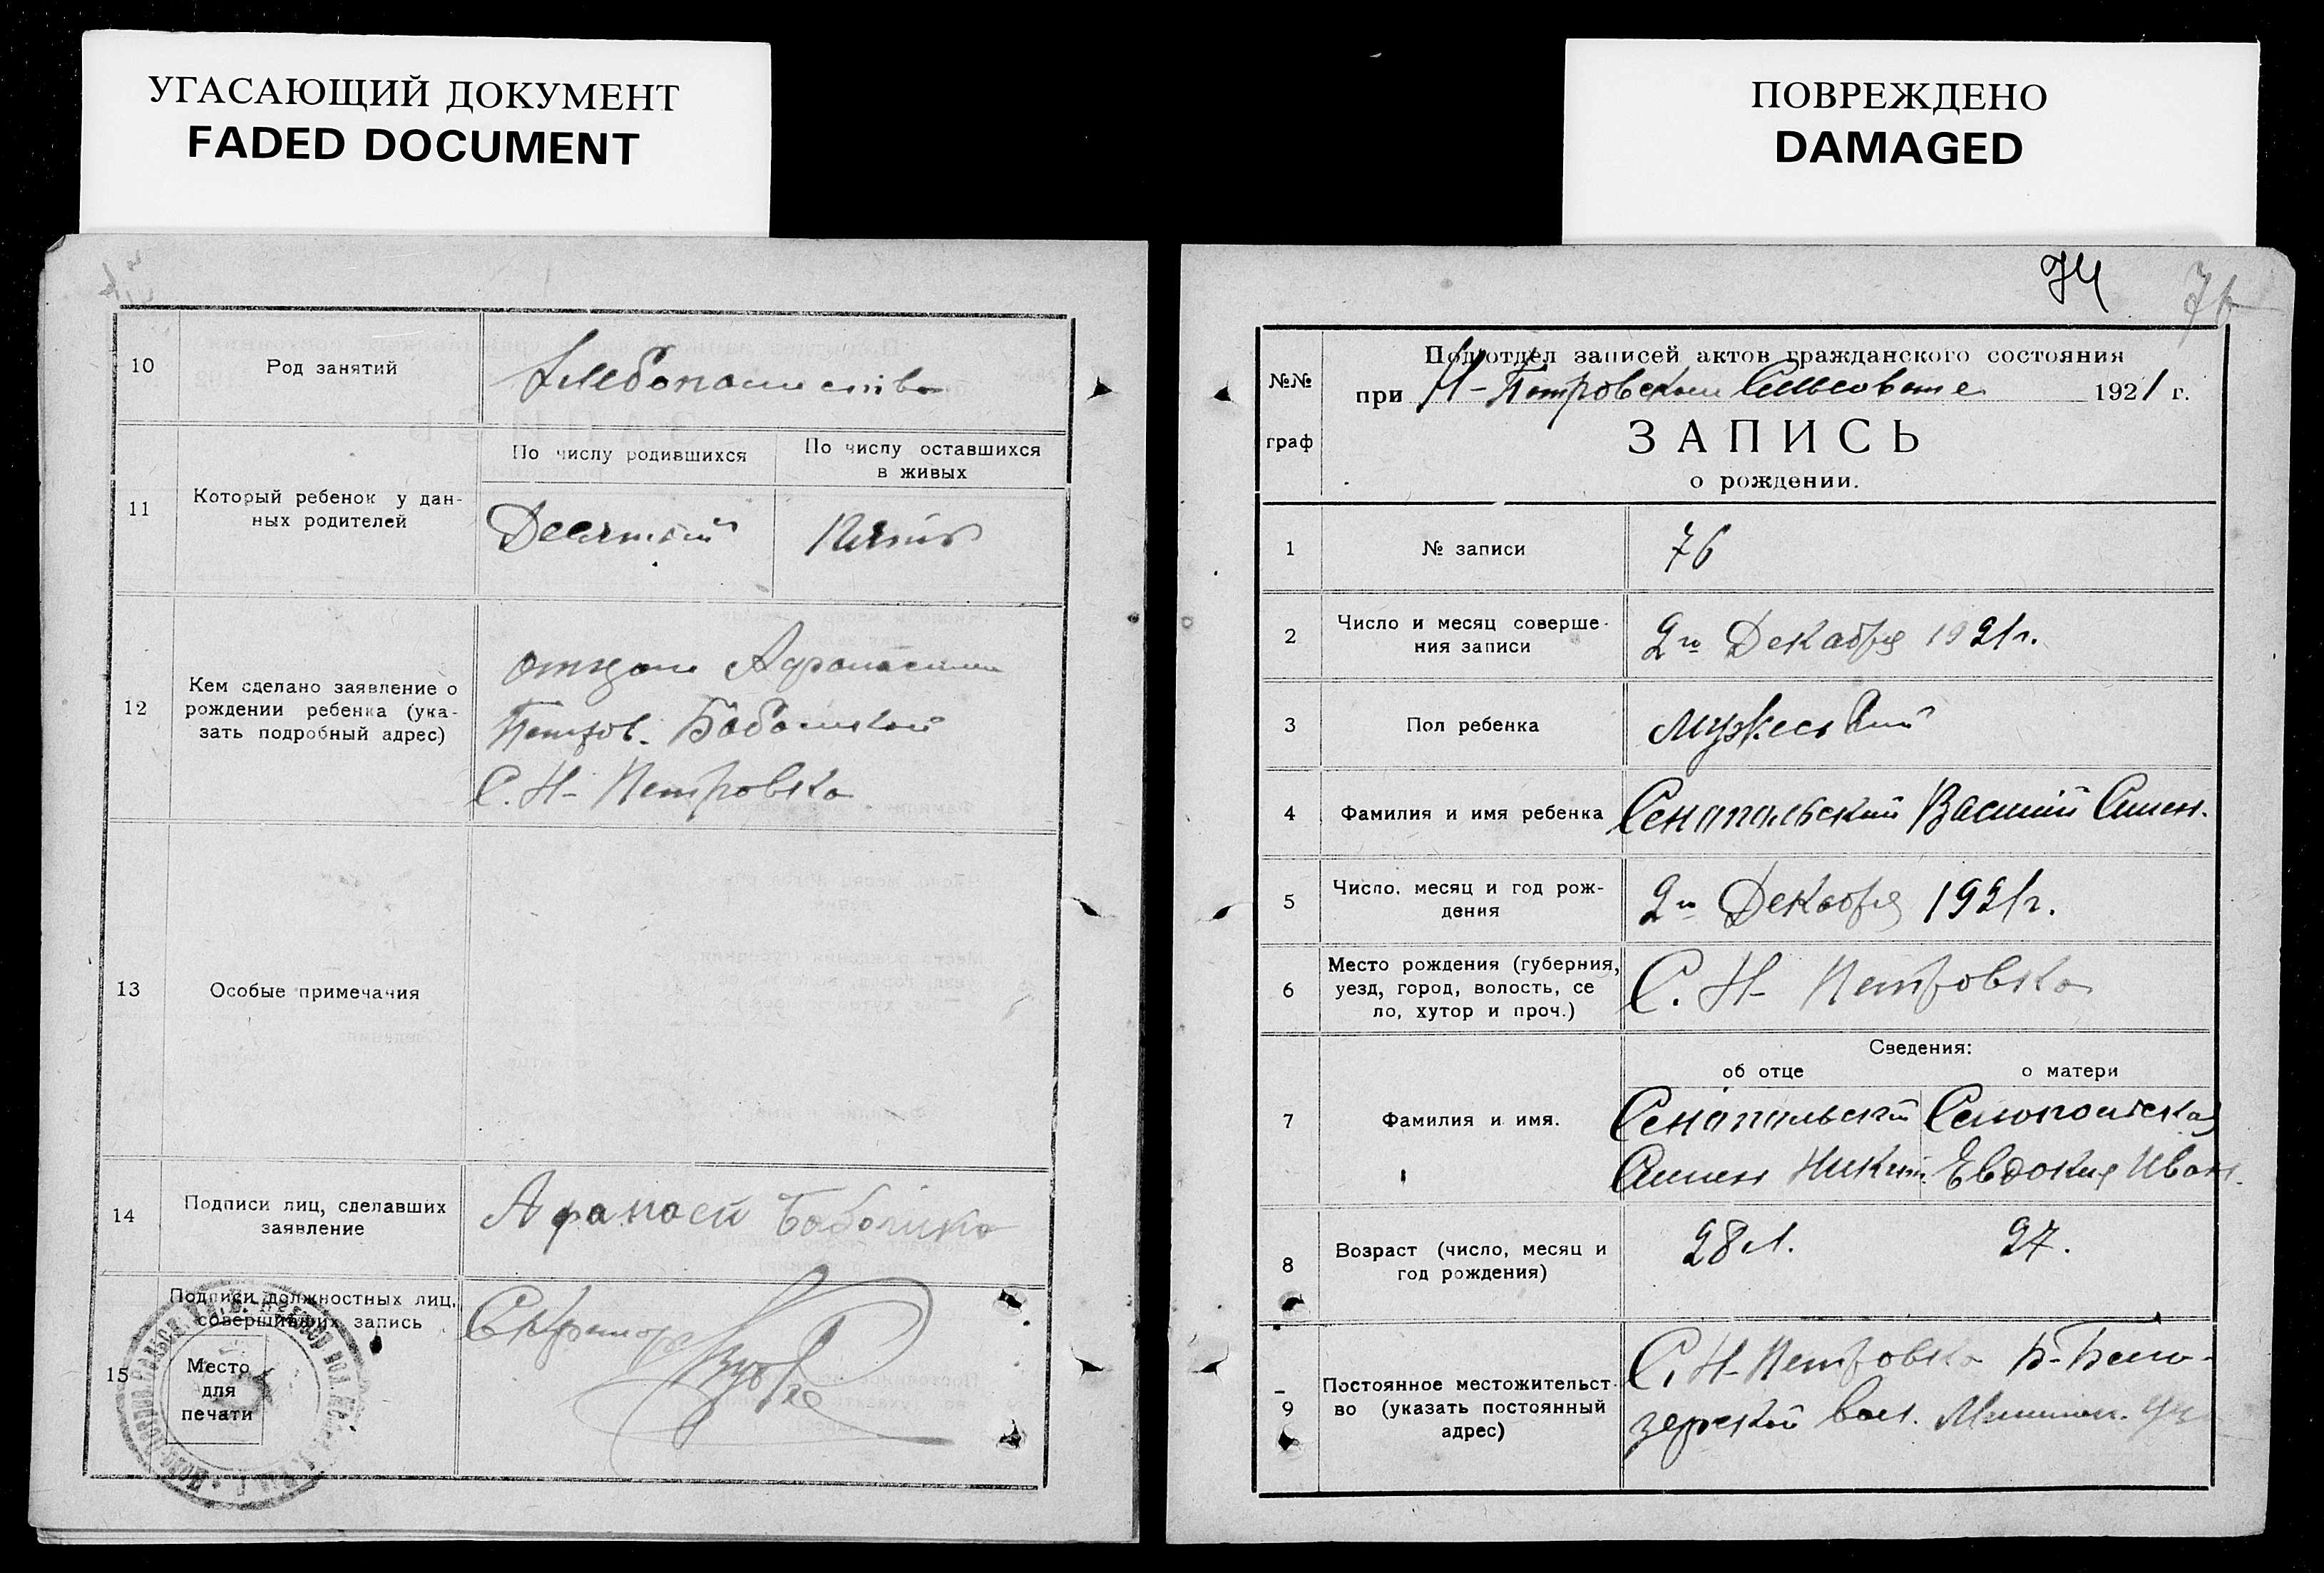 УГАСАЮЩИЙ ДОКУМЕНТ
FADED DOCUMENT
10
Род занятий
Хлебопашество
11
Который ребенок у дан-
ных родителей
По числу родившихся
По числу оставшихся
в живых
Десятый
Пять
12
Кем сделано заявление о
рождении ребенка (ука-
зать подробный адрес)
отцом Афанасием
Петров. Бабошкой
С. Н-Петровка
13
Особые примечания
14
Подписи лиц, сделавших
заявление
Афанасий Бабошка
15
Подписи должностных лиц,
совершивших запись
Место
для
печати
Секретарь
ПОВРЕЖДЕНО
DAMAGED
74
76
№№
граф
Подотдел записей актов гражданского состояния
при Н-Петровском Сельсовете 1921 г.
ЗАПИСЬ
о рождении.
1
№ записи
76
2
Число и месяц соверше-
ния записи
2го Декабря 1921г.
3
Пол ребенка
мужеский
4
Фамилия и имя ребенка
Сенопальский Василий Симен.
5
Число, месяц и год рож-
дения
2го Декабря 1921г.
6
Место рождения (губерния,
уезд, город, волость, се
ло, хутор и проч.)
С. Н-Петровка
7
Фамилия и имя.
Сведения:
об отце
о матери
Сенопальский
Симен Никит.
Сенопольская
Евдокия Иван.
8
Возраст (число, месяц и
год рождения)
28 л.
27.
9
Постоянное местожительст-
во (указать постоянный
адрес)
С. Н-Петровка Б-Бело-
зерской вол. Мелитоп. уез